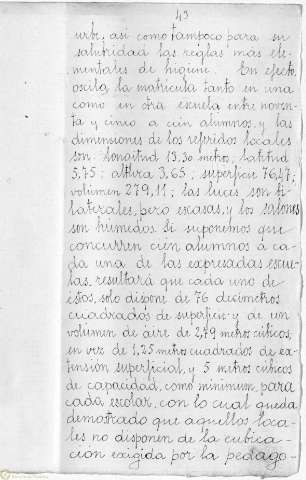 43
urbe, así como tampoco para su
salubridad las reglas más ele-
mentales de higiene. En efecto,
oscila, la matrícula tanto en una
como en otra escuela entre noven-
ta y cinco a cien alumnos, y las
dimensiones de los referidos locales
son: Longitud 13,30 metros, latitud
5,75; altura 3,65; superficie 76,47;
volúmen 279,11; las luces son bi-
laterales, pero escasas, y los salones
son húmedos. Si suponemos que
concurren cien alumnos a ca-
da una de las expresadas escue-
las, resultará que cada uno de
éstos, solo dispone de 76 decímetros
cuadrados de superficie y de un
volúmen de aire de 2,79 metros cúbicos,
en vez de 1,25 metros cuadrados de ex-
tensión superficial, y 5 metros cúbicos
de capacidad, como mínimum, para
cada escolar, con lo cual queda
demostrado que aquellos loca-
les no disponen de la cubica-
ción exigida por la pedago-